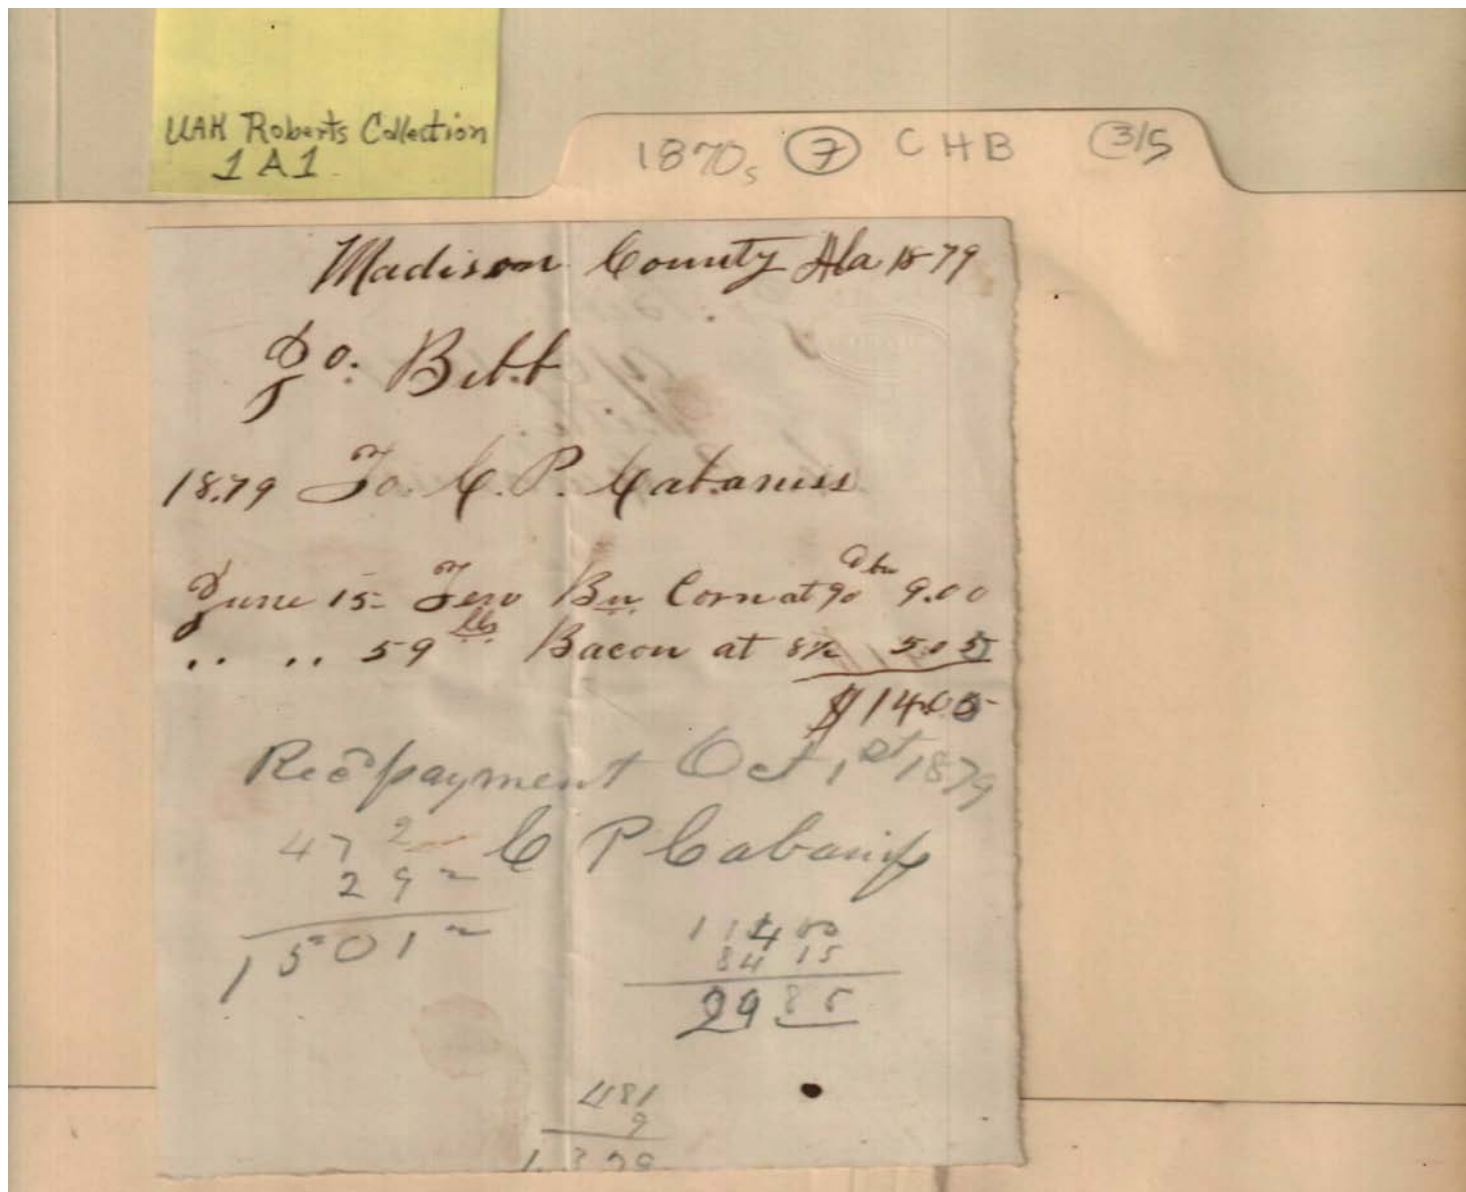 UAH Roberts Collection
1 A 1
1870s 7 CHB 3/5
Madison County Ala 1879
Jo: Bibb
1879 To. C. P. Cabaniss
June 15- Ten Bu Corn at 90 9.00
.. .. 59 lbs Bacon at 8½ 5.05
$14.05
Recd payment Oct 1st 1879
C P Cabaniss
47 2
29
1501
114 00
84 15
29 85
481